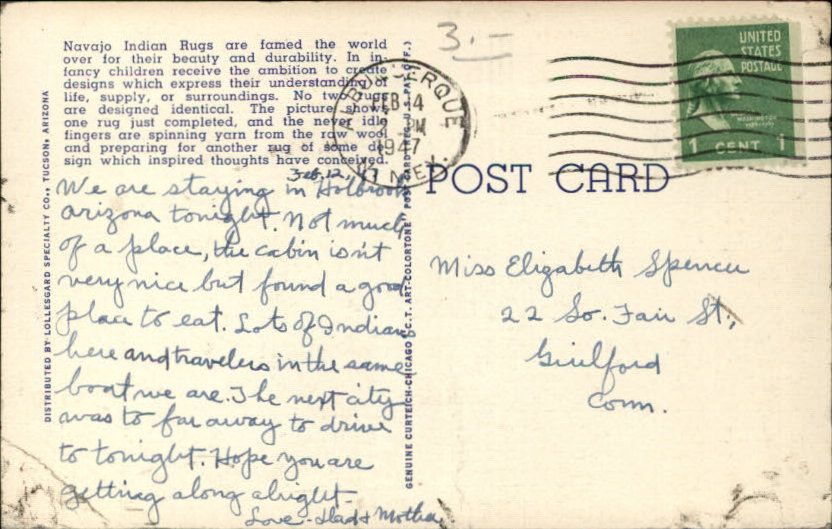 3.—
Navajo Indian Rugs are famed the world
over for their beauty and durability. In in-
fancy children receive the ambition to create
designs which express their understanding of
life, supply, or surroundings. No two rugs
are designed identical. The picture shows
one rug just completed, and the never idle
fingers are spinning yarn from the raw wool
and preparing for another rug of some de-
sign which inspired thoughts have conceived.
Feb. 12, 47
We are staying in Holbrook
arizona tonight. Not much
of a place, the cabin isn't
very nice but found a good
place to eat. Lots of Indians
here and travelers in the same
boat we are. The next city
was to far away to drive
to tonight. Hope you are
getting along alright–
Love – Dad & Mother
DISTRIBUTED BY LOLLESGARD SPECIALTY CO., TUCSON, ARIZONA
GENUINE CURTEICH-CHICAGO "C.T. ART-COLORTONE" POST CARD (REG. U.S. PAT. OFF.)
ALBUQUERQUE
FEB 14
PM
1947
N. MEX.
UNITED
STATES
POSTAGE
WASHINGTON
1 CENT 1
POST CARD
Miss Elizabeth Spencer
22 So. Fair St.,
Guilford
Conn.